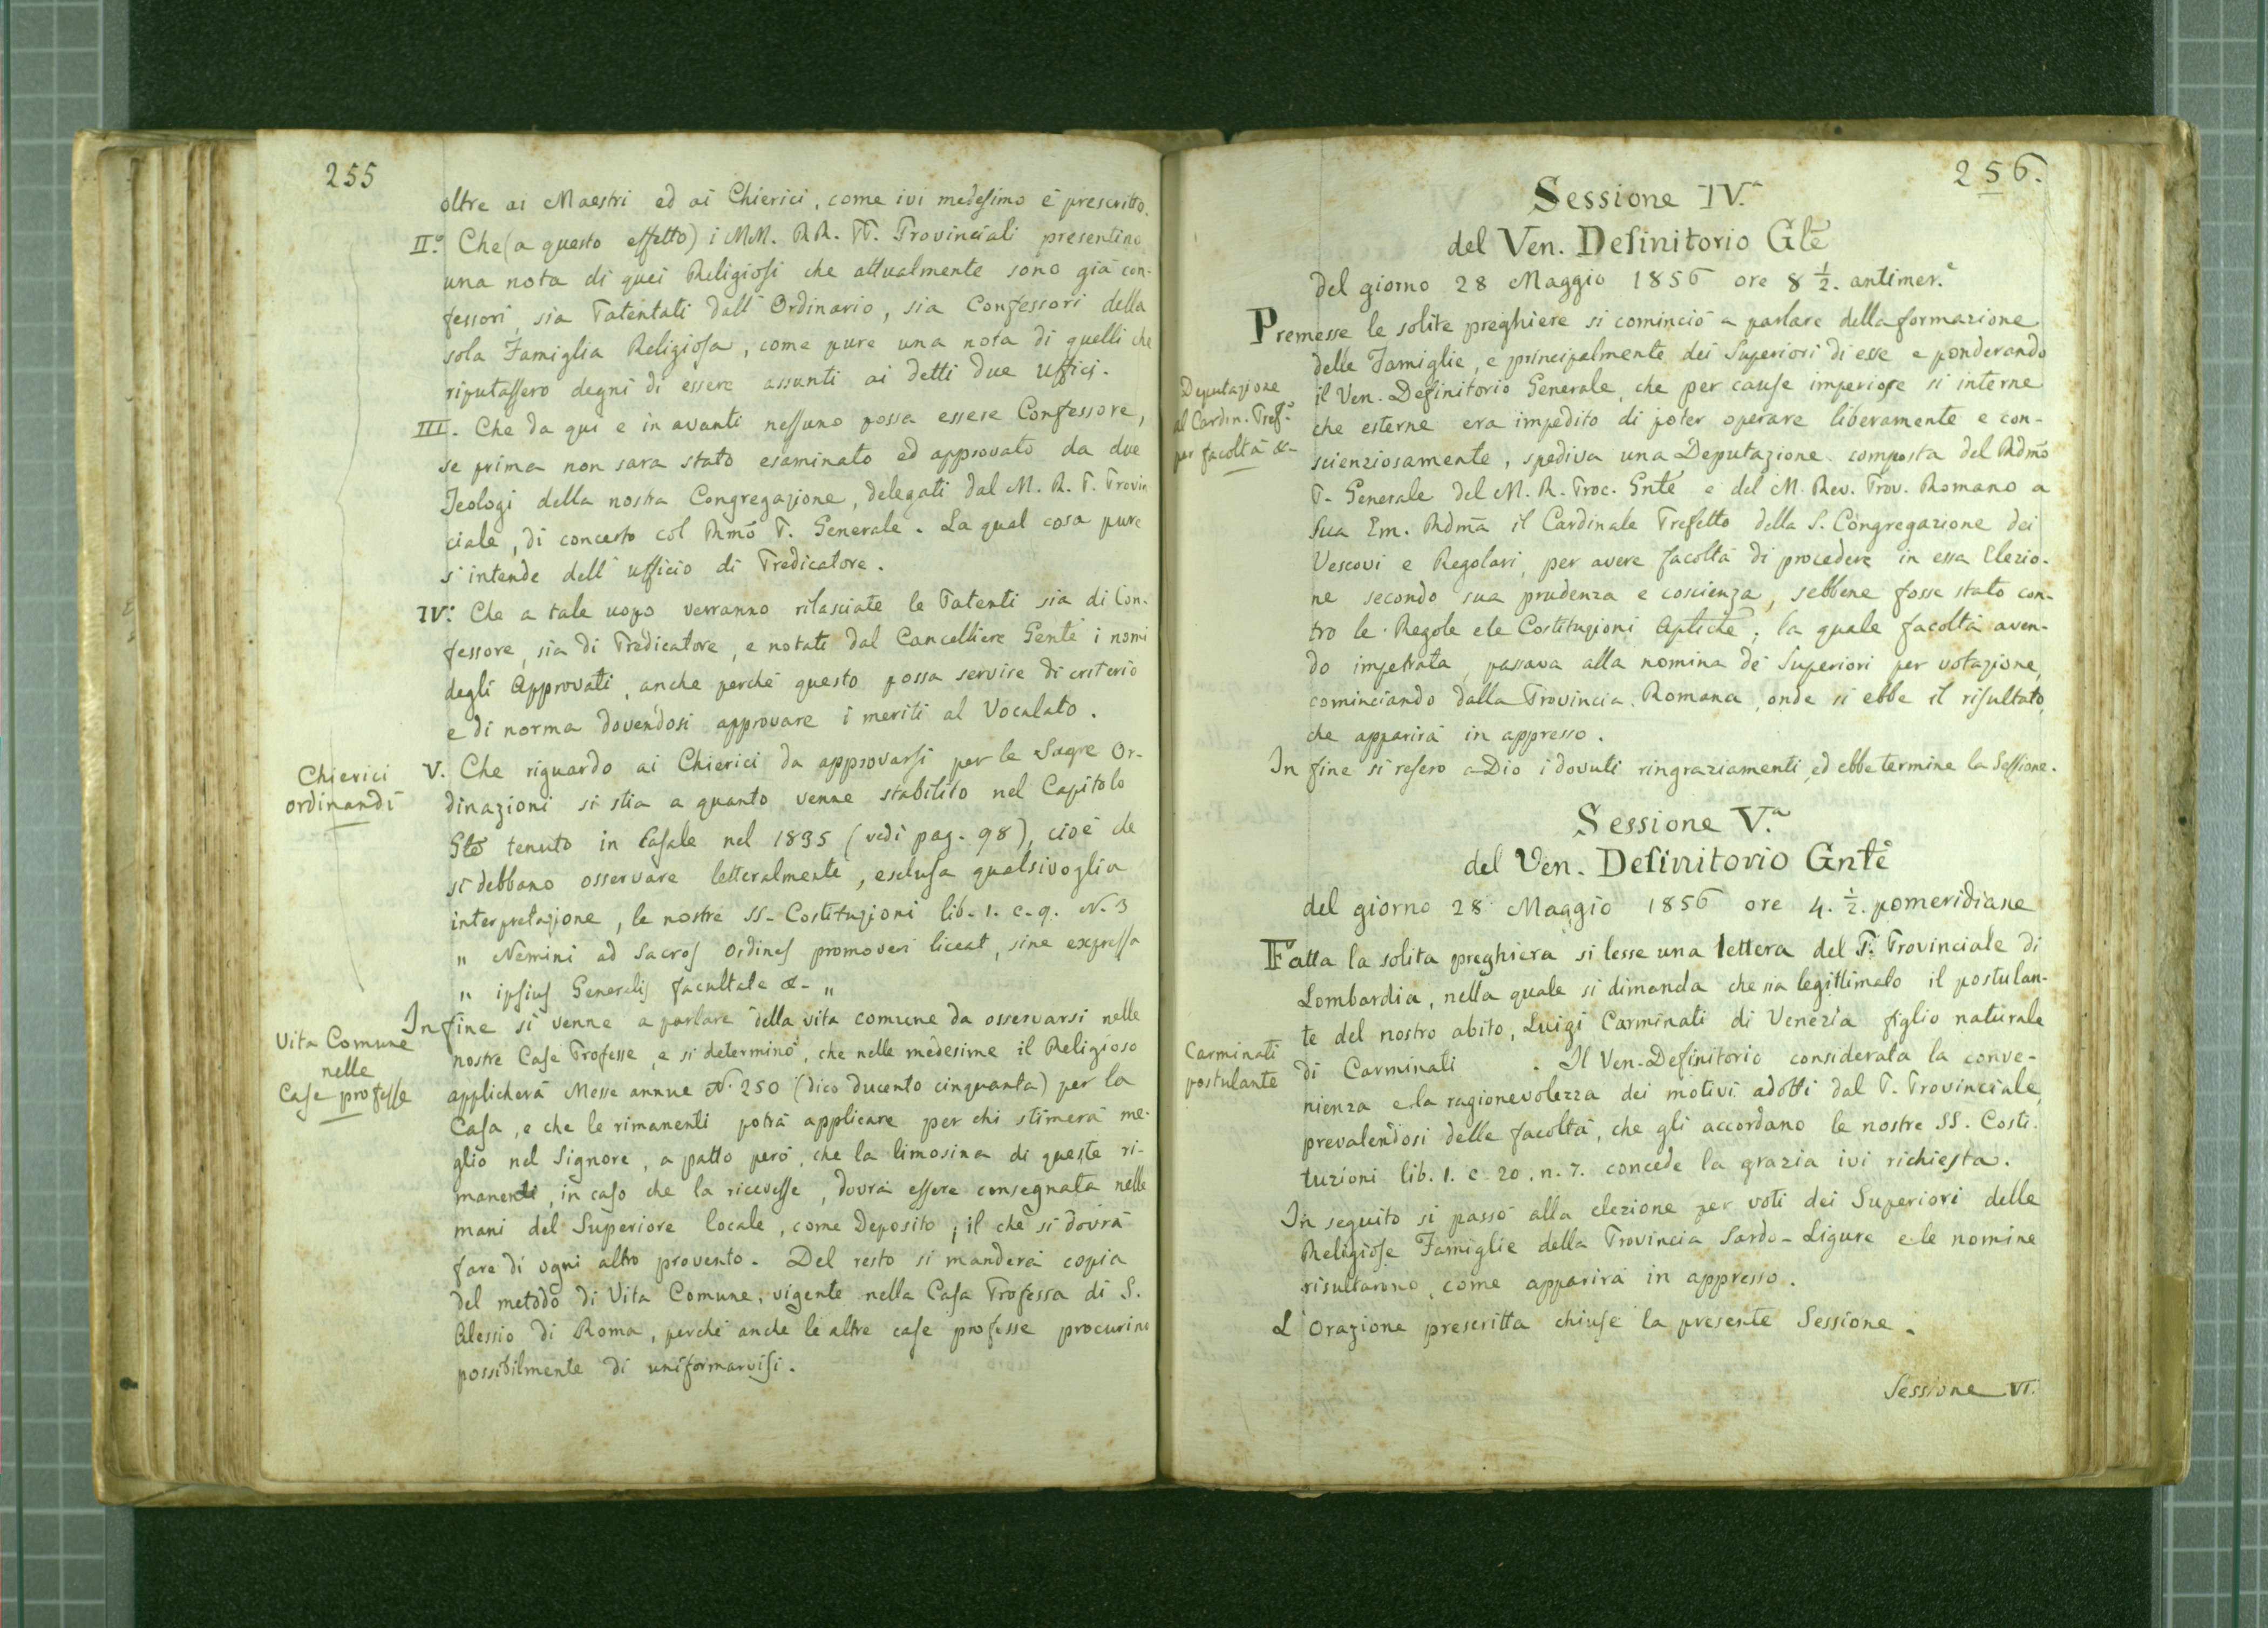 255
oltre ai Maestri ed ai Chierici, come ivi medesimo è prescritto.
II.° Che (a questo effetto) i MM. RR. PP. Provinciali presentino
una nota di quei Religiosi che attualmente sono già con-
fessori, sia Patentati dall'Ordinario, sia Confessori della
sola Famiglia Religiosa, come pure una nota di quelli che
riputassero degni di essere assunti ai detti due Ufficj.
III. Che da qui e in avanti nessuno possa essere Confessore,
se prima non sara stato esaminato ed approvato da due
Teologi della nostra Congregazione, delegati dal M. R. P. Provin
ciale, di concerto col Rmo P. Generale. La qual cosa pure
s'intende dell'ufficio di Predicatore.
IV. Che a tale uopo verranno rilasciate le Patenti sia di Con-
fessore, sia di Predicatore, e notati dal Cancelliere Gente i nomi
degli Approvati, anche perchè questo possa servire di criterio
e di norma dovendosi approvare i meriti al Vocalato.
Chierici
ordinandi
V. Che riguardo ai Chierici da approvarsi per le Sagre Or-
dinazioni si stia a quanto venne stabilito nel Capitolo
Gte tenuto in Casale nel 1835 (vedi pag. 98), cioè che
si debbano osservare letteralmente, esclusa qualsivoglia
interpretazione, le nostre SS. Costituzioni lib. 1. c. 9. N. 3
„ Nemini ad Sacros Ordines promoveri liceat, sine expressa
„ ipsius Generalis facultate &. „
Vita Comune
nelle
Case professe
Infine si venne a parlare della vita comune da osservarsi nelle
nostre Case Professe, e si determinò, che nelle medesime il Religioso
applicherà Messe annue N. 250 (dico ducento cinquanta) per la
Casa, e che le rimanenti potrà applicare per chi stimerà me-
glio nel Signore, a patto però, che la limosina di queste ri-
manenti, in caso che la ricevesse, dovrà essere consegnata nelle
mani del Superiore locale, come Deposito; il che si dovrà
fare di ogni altro provento. Del resto si manderà copia
del metodo di Vita Comune, vigente nella Casa Professa di S.
Alessio di Roma, perchè anche le altre case professe procurino
possibilmente di uniformarvisi.
256.
Sessione IV.a
del Ven. Definitorio Gle
del giorno 28 Maggio 1856 ore 8 1/2. antimer.e
Premesse le solite preghiere si cominciò a parlare della formazione
delle Famiglie, e principalmente dei Superiori di esse e ponderando
Deputazione
al Cardin. Pref.o
per facoltà &
il Ven. Definitorio Generale, che per cause imperiose si interne
che esterne era impedito di poter operare liberamente e con-
scienziosamente, spediva una Deputazione composta del Rdmo
P. Generale del M. R. Proc. Gnte e del M. Rev. Prov. Romano a
Sua Em. Rdma il Cardinale Prefetto della S. Congregazione dei
Vescovi e Regolari, per avere facoltà di procedere in essa Elezio-
ne secondo sua prudenza e coscienza, sebbene fosse stato con-
tro le Regole e le Costituzioni Apliche; la quale facoltà aven-
do impetrata, passava alla nomina de' Superiori per votazione,
cominciando dalla Provincia Romana, onde si ebbe il risultato,
che apparirà in appresso.
In fine si resero a Dio i dovuti ringraziamenti, ed ebbe termine la Sessione.
Sessione V.a
del Ven. Definitorio Gnte
del giorno 28 Maggio 1856 ore 4. 1/2. pomeridiane
Fatta la solita preghiera si lesse una lettera del P. Provinciale di
Lombardia, nella quale si dimanda che sia legittimato il postulan-
te del nostro abito, Luigi Carminati di Venezia figlio naturale
Carminati
postulante
di Carminati . Il Ven. Definitorio considerata la conve-
nienza e la ragionevolezza dei motivi adotti dal P. Provinciale,
prevalendosi delle facoltà, che gli accordano le nostre SS. Costi-
tuzioni lib. 1. c. 20. n. 7. concede la grazia ivi richiesta.
In seguito si passò alla elezione per voti dei Superiori delle
Religiose Famiglie della Provincia Sardo-Ligure e le nomine
risultarono, come apparirà in appresso.
L'Orazione prescritta chiuse la presente Sessione.
Sessione VI.